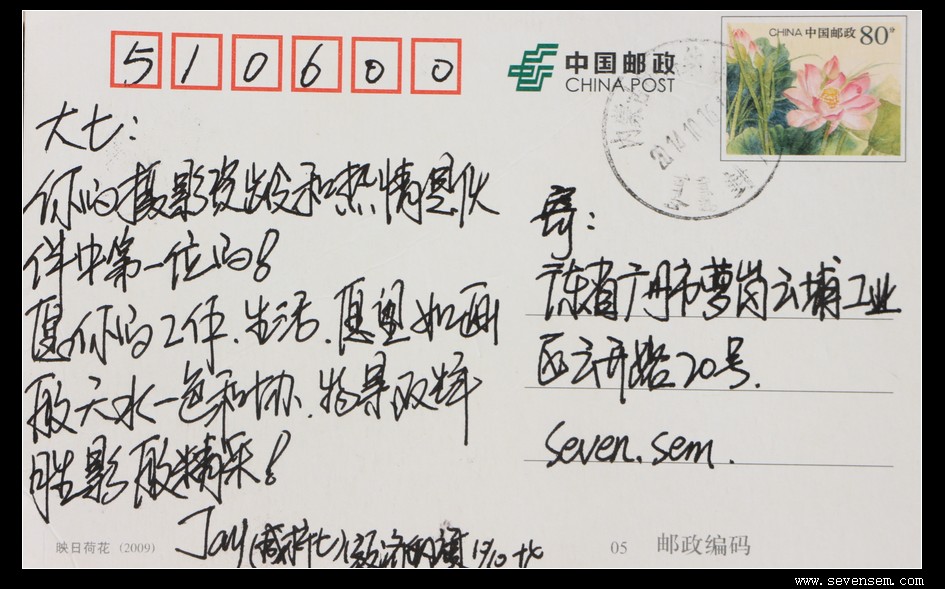 510600
中国邮政
CHINA POST
CHINA 中国邮政 80
大七：
你的摄影资出役和热情是伙
件中第一位的！
愿你的工作、生活、愿望如画
般天水一色和协、
胜影般精采！
寄：
广东省广州市萝岗云埔工业
区云开路20号.
seven.sem.
Jay
映日荷花 (2009)
05 邮政编码
www.sevensem.com